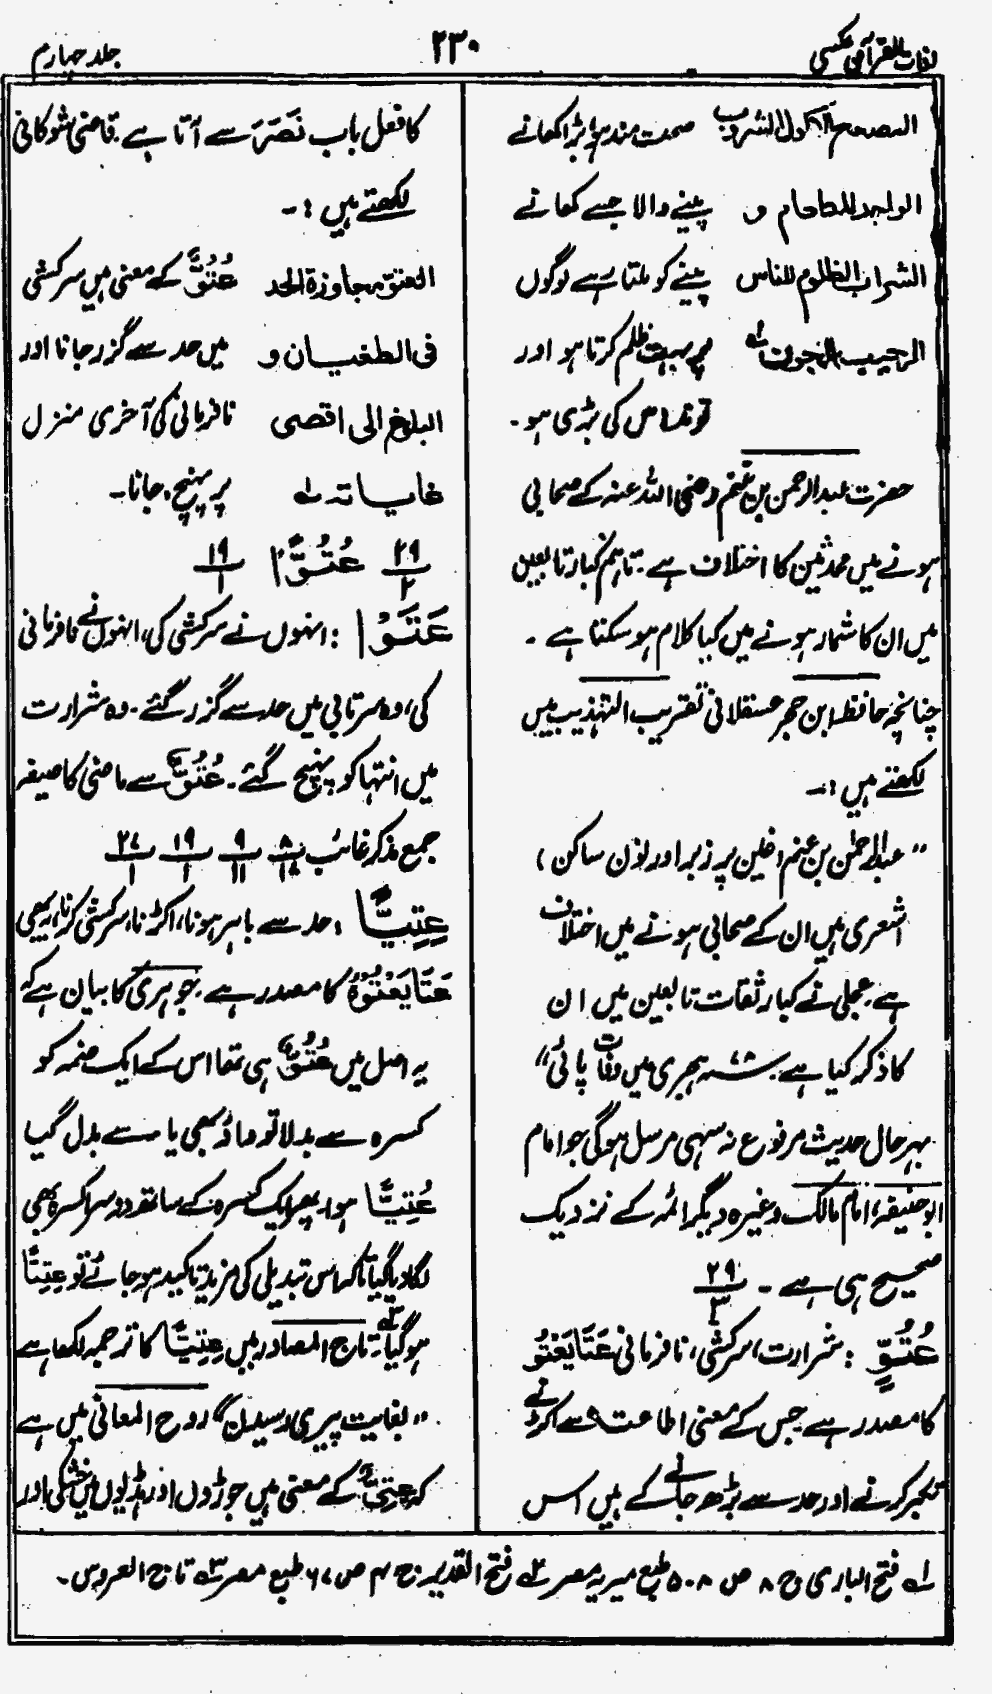 لغات القرآن عکسی
۲۳۰
جلد چہارم
المصحح الاکول الشروب صحت مند ہو بڑا کھانے
الواجد للطعام و پینے والا جسے کھانے
الشراب الظلوم للناس پینے کو ملتا رہے لوگوں
الرحیب الجوف لہ پر بہت ظلم کرتا ہو اور
توند اس کی بڑی ہو۔
حضرت عبدالرحمن بن غنم رضی اللہ عنہ کے صحابی
ہونے میں محدثین کا اختلاف ہے۔ تاہم کبار تابعین
میں ان کا شمار ہونے میں کیا کلام ہو سکتا ہے ۔
چنانچہ حافظ ابن حجر عسقلانی تقریب التہذیب میں
لکھتے ہیں :۔
” عبدالرحمٰن بن غنم (غین پر زبر اور نون ساکن )
اشعری ہیں ان کے صحابی ہونے میں اختلاف
ہے عجلی نے کبار ثقات تابعین میں ان
کا ذکر کیا ہے۔ ۷۸ سنہ ہجری میں وفات پائی“
بہرحال حدیث مرفوع نہ سہی مرسل ہوگی جو امام
ابوحنیفہ، امام مالک وغیرہ دیگر ائمہ کے نزدیک
صحیح ہی ہے ۔ ۲۹/۳
عُتُوٍّ : شرارت، سرکشی، نافرمانی، عَتَا یَعْتُو
کا مصدر ہے جس کے معنی اطاعت سے اکڑنے
تکبر کرنے اور حد سے بڑھ جانے کے ہیں اس
کا فعل باب نَصَرَ سے آتا ہے۔ قاضی شوکانی
لکھتے ہیں :۔
العتو مجاوزۃ الحد عُتُوّ کے معنی ہیں سرکشی
فی الطغیان و میں حد سے گزر جانا اور
البلوغ الی اقصی نافرمانی کی آخری منزل
غایاتہ لہ پر پہنچ جانا۔
۲۹/۲ عُتُوًّا ۱۹/۱
عَتَوْا : انہوں نے سرکشی کی، انہوں نے نافرمانی
کی، وہ سرتابی میں حد سے گزر گئے۔ وہ شرارت
میں انتہا کو پہنچ گئے۔ عُتُوٌّ سے ماضی کا صیغہ
جمع مذکر غائب ۸/۱۷ ۹/۱۱ ۱۹/۱ ۲۷/۱
عِتِیًّا : حد سے باہر ہونا، اکڑنا، سرکشی کرنا، یہ بھی
عَتَا یَعْتُوْ کا مصدر ہے۔ جوہری کا بیان ہے کہ
یہ اصل میں عُتُوٌّ ہی تھا اس کے ایک ضمہ کو
کسرہ سے بدلا تو واؤ بھی یاء سے بدل گیا
عُتِیًّا ہوا۔ پھر ایک کسرہ کے ساتھ دوسرا کسرہ بھی
لگا دیا گیا تاکہ اس تبدیلی کی مزید تاکید ہو جائے تو عِتِیًّا
ہو گیا۔ ۳ے تاج المصادر میں عِتِیًّا کا ترجمہ لکھا ہے
” بغایت پیری رسیدن“ روح المعانی میں ہے
کہ عتیّ کے معنی ہیں جوڑوں اور ہڈیوں میں خشکی اور
۱ے فتح الباری ج ۸ ص ۵۰۸ طبع میریہ مصر ۲ے فتح القدیر ج ۴ ص ۶۷ طبع مصر ۳ے تاج العروس۔